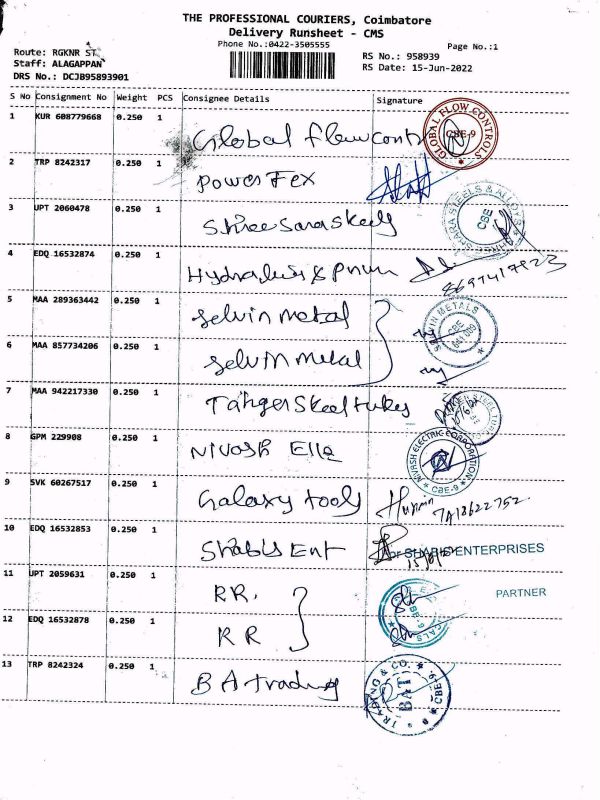 THE PROFESSIONAL COURIERS, Coimbatore
Delivery Runsheet - CMS
Phone No.:0422-3505555
Page No.:1
Route: RGKNR ST
Staff: ALAGAPPAN
DRS No.: DCJB95893901
RS No.: 958939
RS Date: 15-Jun-2022
S No Consignment No Weight PCS Consignee Details Signature
1 KUR 608779668 0.250 1 Global flow contr
GLOBAL FLOW CONTROLS CBE-9
2 TRP 8242317 0.250 1
3 UPT 2060478 0.250 1
STEELS & ALLOYS CBE
4 EDQ 16532874 0.250 1
5 MAA 289363442 0.250 1 Selvin metal
METALS
6 MAA 857734206 0.250 1 Selvin metal
7 MAA 942217330 0.250 1
8 GPM 229908 0.250 1 Nivash Elle
NIVASH ELECTRIC CORPORATION CBE-9
9 SVK 60267517 0.250 1 Galaxy tools
10 EDQ 16532853 0.250 1
ENTERPRISES
PARTNER
11 UPT 2059631 0.250 1 RR.
12 EDQ 16532878 0.250 1 RR
CBE-9
13 TRP 8242324 0.250 1 BA trading
TRADING & CO. BAT CBE-9